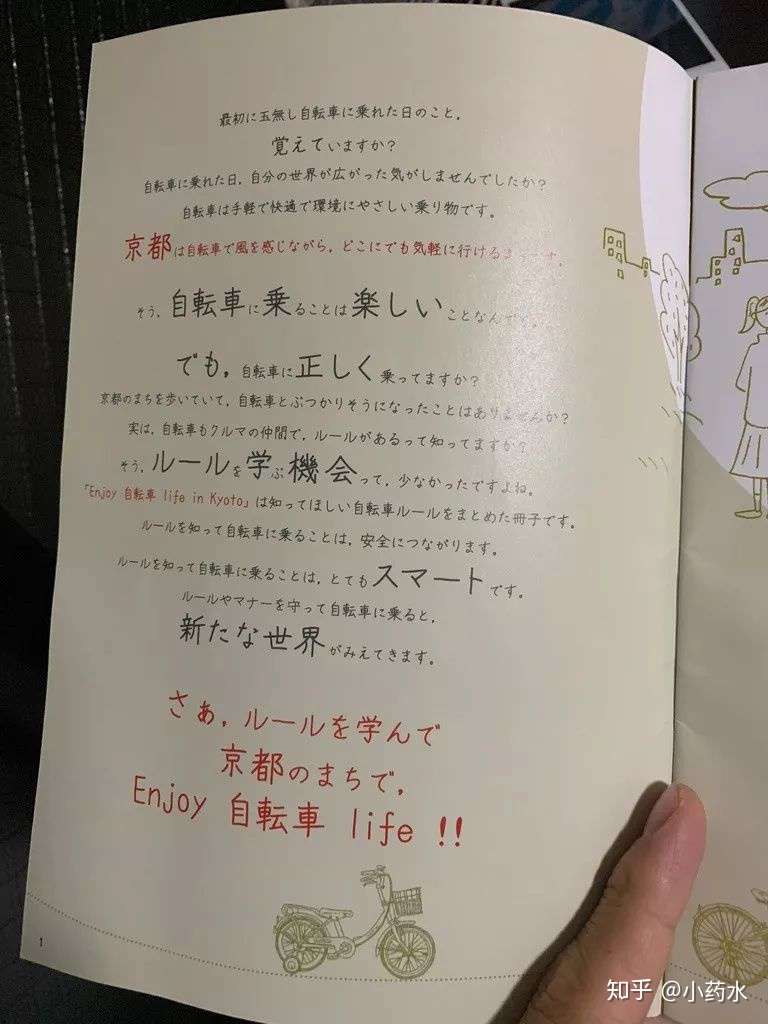 最初に玉無し自転車に乗れた日のこと,
覚えていますか?
自転車に乗れた日, 自分の世界が広がった気がしませんでしたか?
自転車は手軽で快適で環境にやさしい乗り物です。
京都は自転車で風を感じながら, どこにでも気軽に行けるまちです。
そう, 自転車に乗ることは楽しいことなんです。
でも, 自転車に正しく乗ってますか?
京都のまちを歩いていて, 自転車とぶつかりそうになったことはありませんか?
実は, 自転車もクルマの仲間で, ルールがあるって知ってますか?
そう, ルールを学ぶ機会って, 少なかったですよね。
「Enjoy 自転車 life in Kyoto」は知ってほしい自転車ルールをまとめた冊子です。
ルールを知って自転車に乗ることは, 安全につながります。
ルールを知って自転車に乗ることは, とてもスマートです。
ルールやマナーを守って自転車に乗ると,
新たな世界がみえてきます。
さぁ, ルールを学んで
京都のまちで,
Enjoy 自転車 life !!
1
知乎 @小药水